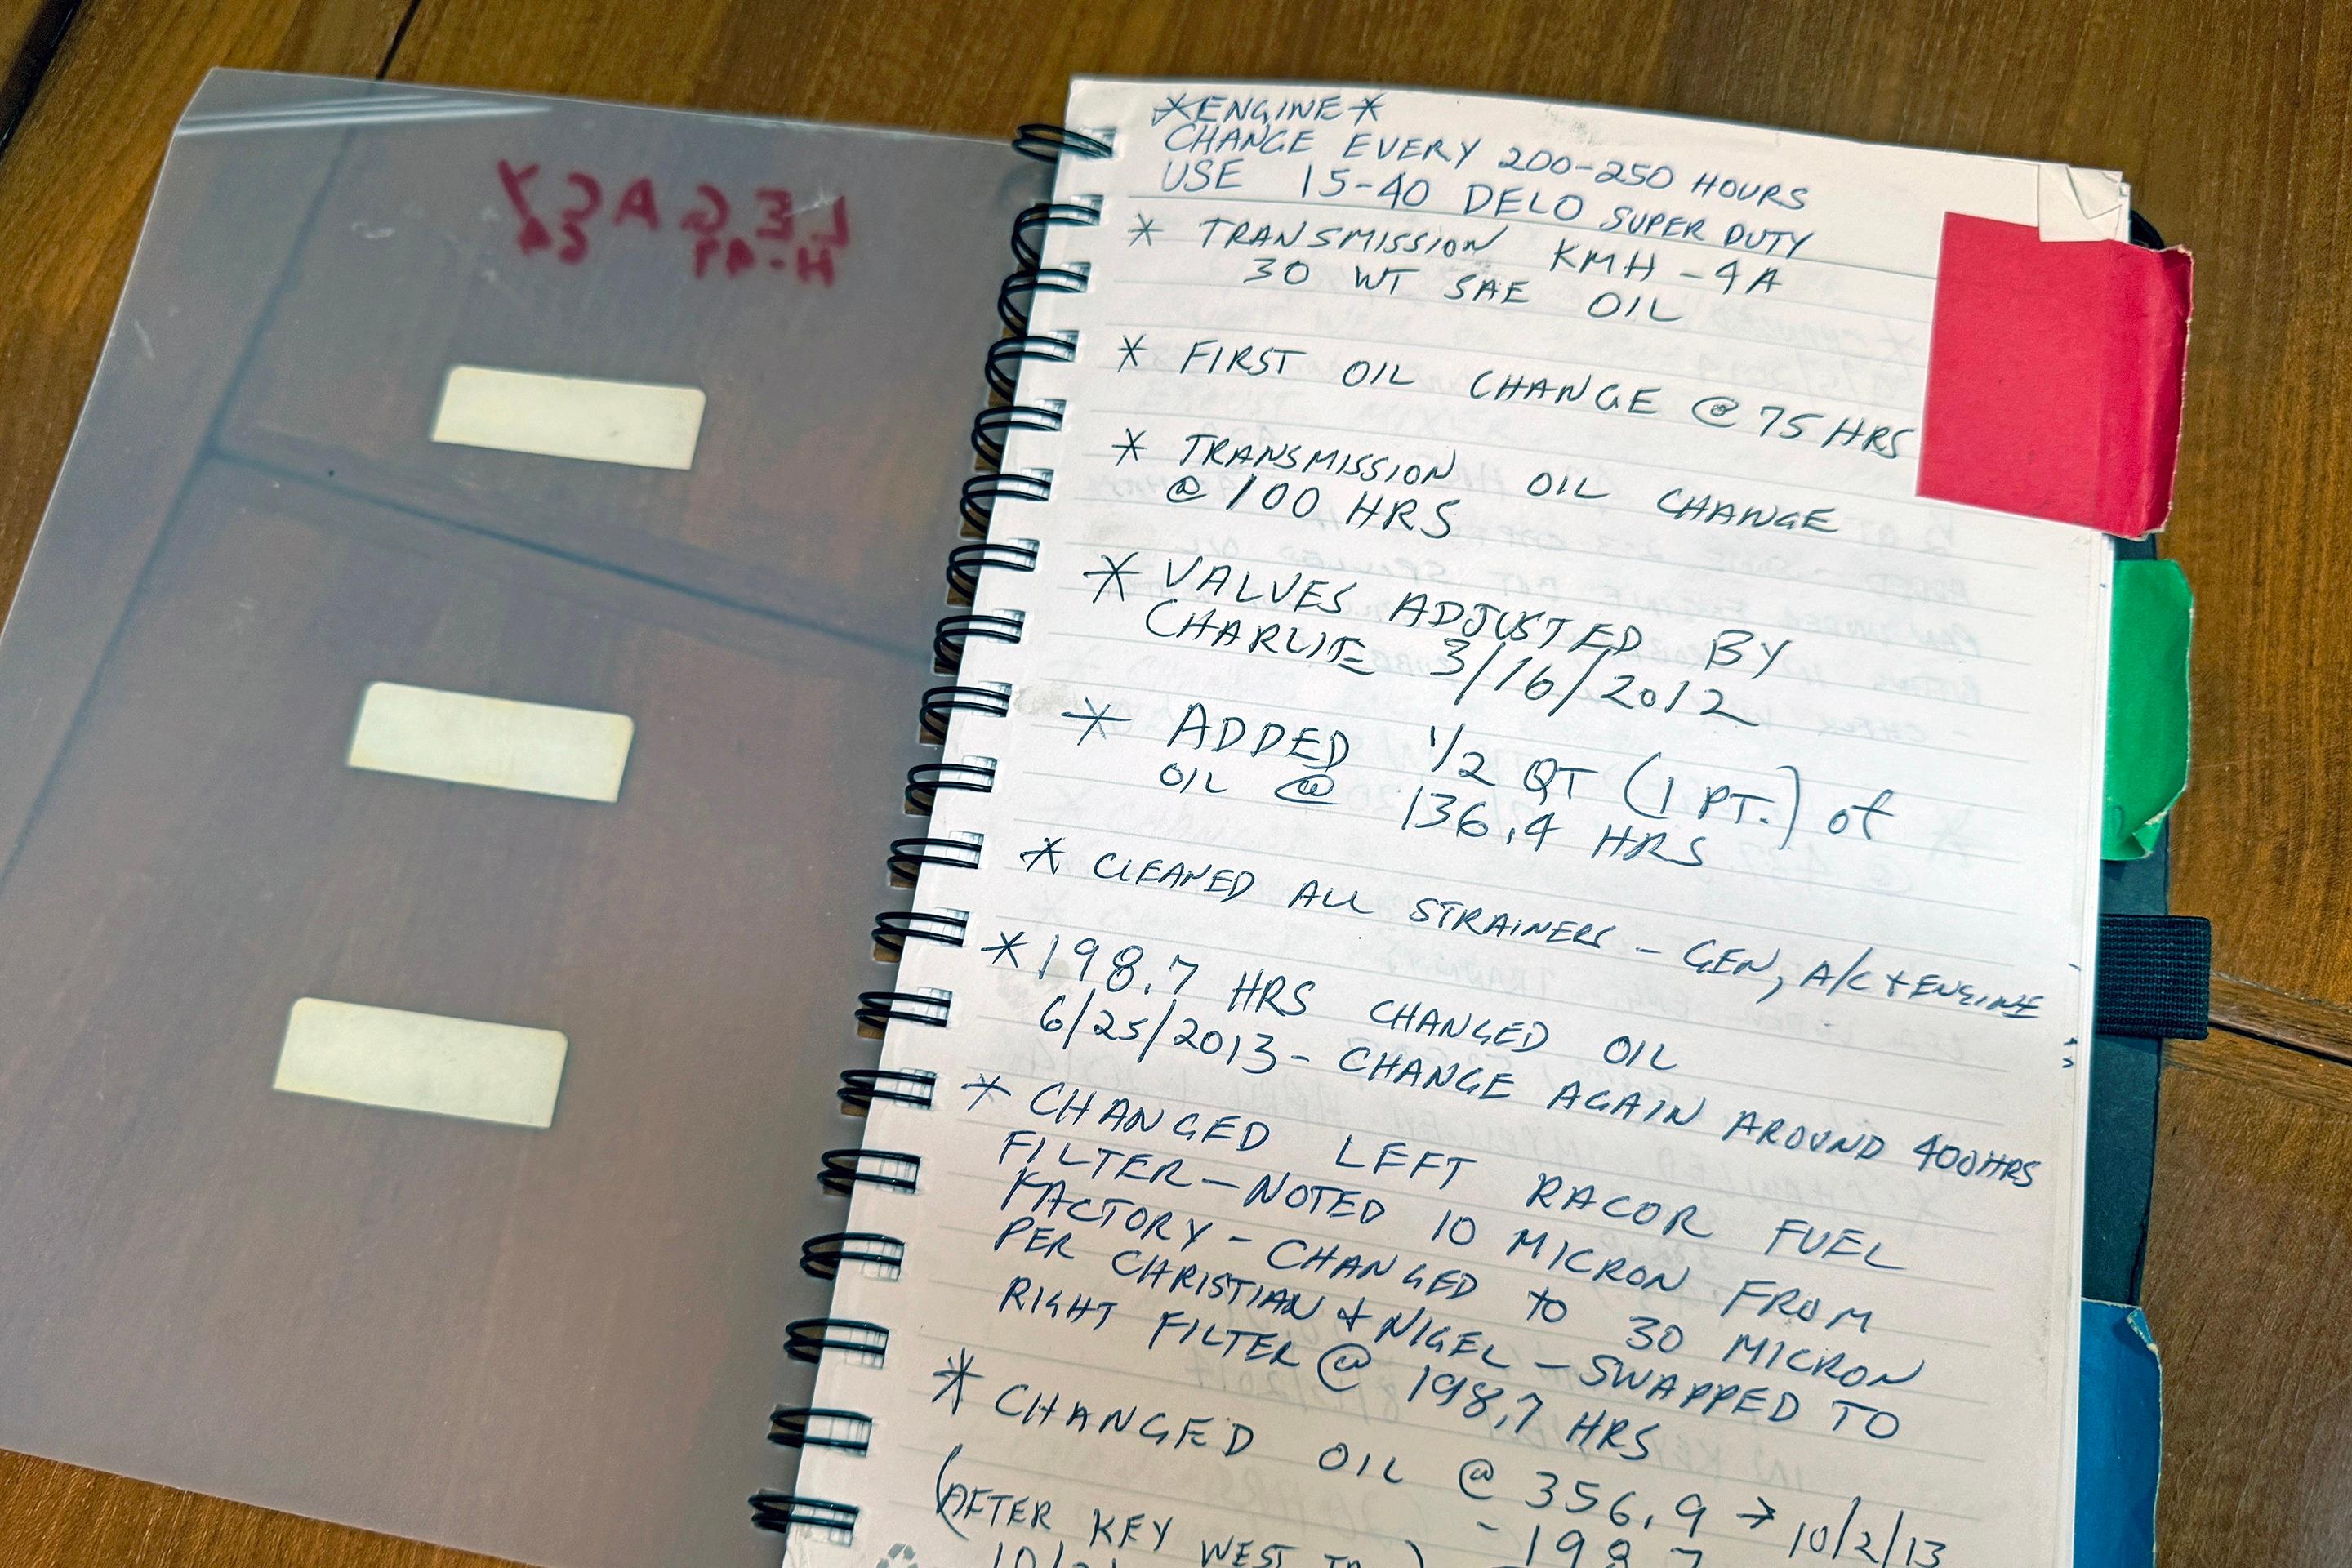 LEGACY
*ENGINE*
CHANGE EVERY 200-250 HOURS
USE 15-40 DELO SUPER DUTY
* TRANSMISSION KMH-4A
30 WT SAE OIL
* FIRST OIL CHANGE @ 75 HRS
* TRANSMISSION OIL CHANGE
@ 100 HRS
* VALVES ADJUSTED BY
CHARLIE 3/16/2012
* ADDED 1/2 QT (1 PT.) of
OIL @ 136.4 HRS
* CLEANED ALL STRAINERS - GEN, A/C + ENGINE
* 198.7 HRS CHANGED OIL
6/25/2013 - CHANGE AGAIN AROUND 400HRS
* CHANGED LEFT RACOR FUEL
FILTER - NOTED 10 MICRON FROM
FACTORY - CHANGED to 30 MICRON
PER CHRISTIAN & NIGEL - SWAPPED TO
RIGHT FILTER @ 198.7 HRS
* CHANGED OIL @ 356.9 → 10/2/13
(AFTER KEY WEST - 198.7